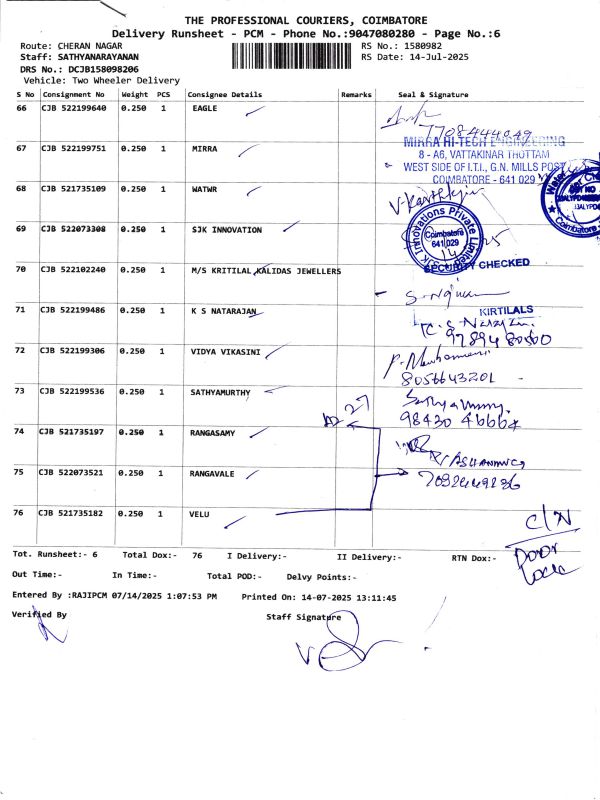 THE PROFESSIONAL COURIERS, COIMBATORE
Delivery Runsheet - PCM - Phone No.:9047080280 - Page No.:6
Route: CHERAN NAGAR
RS No.: 1580982
Staff: SATHYANARAYANAN
RS Date: 14-Jul-2025
DRS No.: DCJB158098206
Vehicle: Two Wheeler Delivery
S No Consignment No Weight PCS Consignee Details Remarks Seal & Signature
66 CJB 522199640 0.250 1 EAGLE
7708444049
67 CJB 522199751 0.250 1 MIRRA
MIRRA HI-TECH ENGINEERING
8 - A6, VATTAKINAR THOTTAM
WEST SIDE OF I.T.I., G.N. MILLS POST
COIMBATORE - 641 029
68 CJB 521735109 0.250 1 WATWR
V. Karthi
69 CJB 522073308 0.250 1 SJK INNOVATION
SJK Innovations Private Limited
Coimbatore
641 029
SECURITY CHECKED
70 CJB 522102240 0.250 1 M/S KRITILAL KALIDAS JEWELLERS
KIRTILALS
71 CJB 522199486 0.250 1 K S NATARAJAN
K. S. Natarajan
97894 80500
72 CJB 522199306 0.250 1 VIDYA VIKASINI
8056643201
73 CJB 522199536 0.250 1 SATHYAMURTHY
98430 46664
27
74 CJB 521735197 0.250 1 RANGASAMY
75 CJB 522073521 0.250 1 RANGAVALE
76 CJB 521735182 0.250 1 VELU
C/N
Door
Lock
Tot. Runsheet:- 6 Total Dox:- 76 I Delivery:- II Delivery:- RTN Dox:-
Out Time:- In Time:- Total POD:- Delvy Points:-
Entered By :RAJIPCM 07/14/2025 1:07:53 PM Printed On: 14-07-2025 13:11:45
Verified By Staff Signature